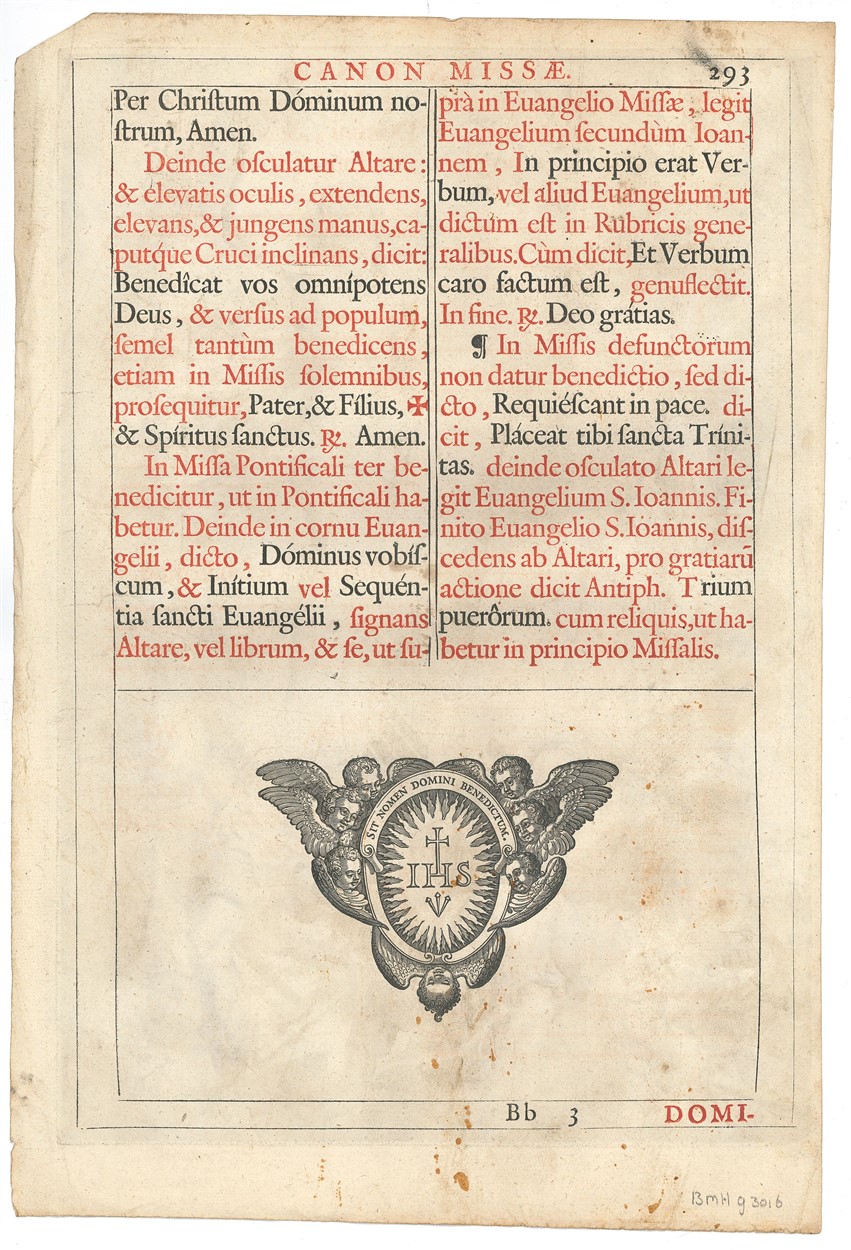 CANON MISSÆ. 293
Per Chriſtum Dóminum no-
ſtrum, Amen.
Deinde oſculatur Altare:
& elevatis oculis, extendens,
elevans, & jungens manus, ca-
putq́ue Cruci inclinans, dicit:
Benedîcat vos omnípotens
Deus, & verſus ad populum,
ſemel tantùm benedicens,
etiam in Miſſis ſolemnibus,
proſequitur, Pater, & Fílius, ✠
& Spíritus ſanctus. ℟. Amen.
In Miſſa Pontificali ter be-
nedicitur, ut in Pontificali ha-
betur. Deinde in cornu Euan-
gelii, dicto, Dóminus vobíſ-
cum, & Inítium vel Sequén-
tia ſancti Euangélii, ſignans
Altare, vel librum, & ſe, ut ſu-
prà in Euangelio Miſſæ, legit
Euangelium ſecundùm Ioan-
nem, In principio erat Ver-
bum, vel aliud Euangelium, ut
dictum eſt in Rubricis gene-
ralibus. Cùm dicit, Et Verbum
caro factum eſt, genuflectit.
In fine. ℟. Deo grátias.
¶ In Miſſis defunctorum
non datur benedictio, ſed di-
cto, Requiéſcant in pace. di-
cit, Pláceat tibi ſancta Tríni-
tas. deinde oſculato Altari le-
git Euangelium S. Ioannis. Fi-
nito Euangelio S. Ioannis, diſ-
cedens ab Altari, pro gratiarū
actione dicit Antiph. Trium
puerôrum. cum reliquis, ut ha-
betur in principio Miſſalis.
SIT NOMEN DOMINI BENEDICTUM.
IHS
Bb 3 DOMI-
BMH g 3016